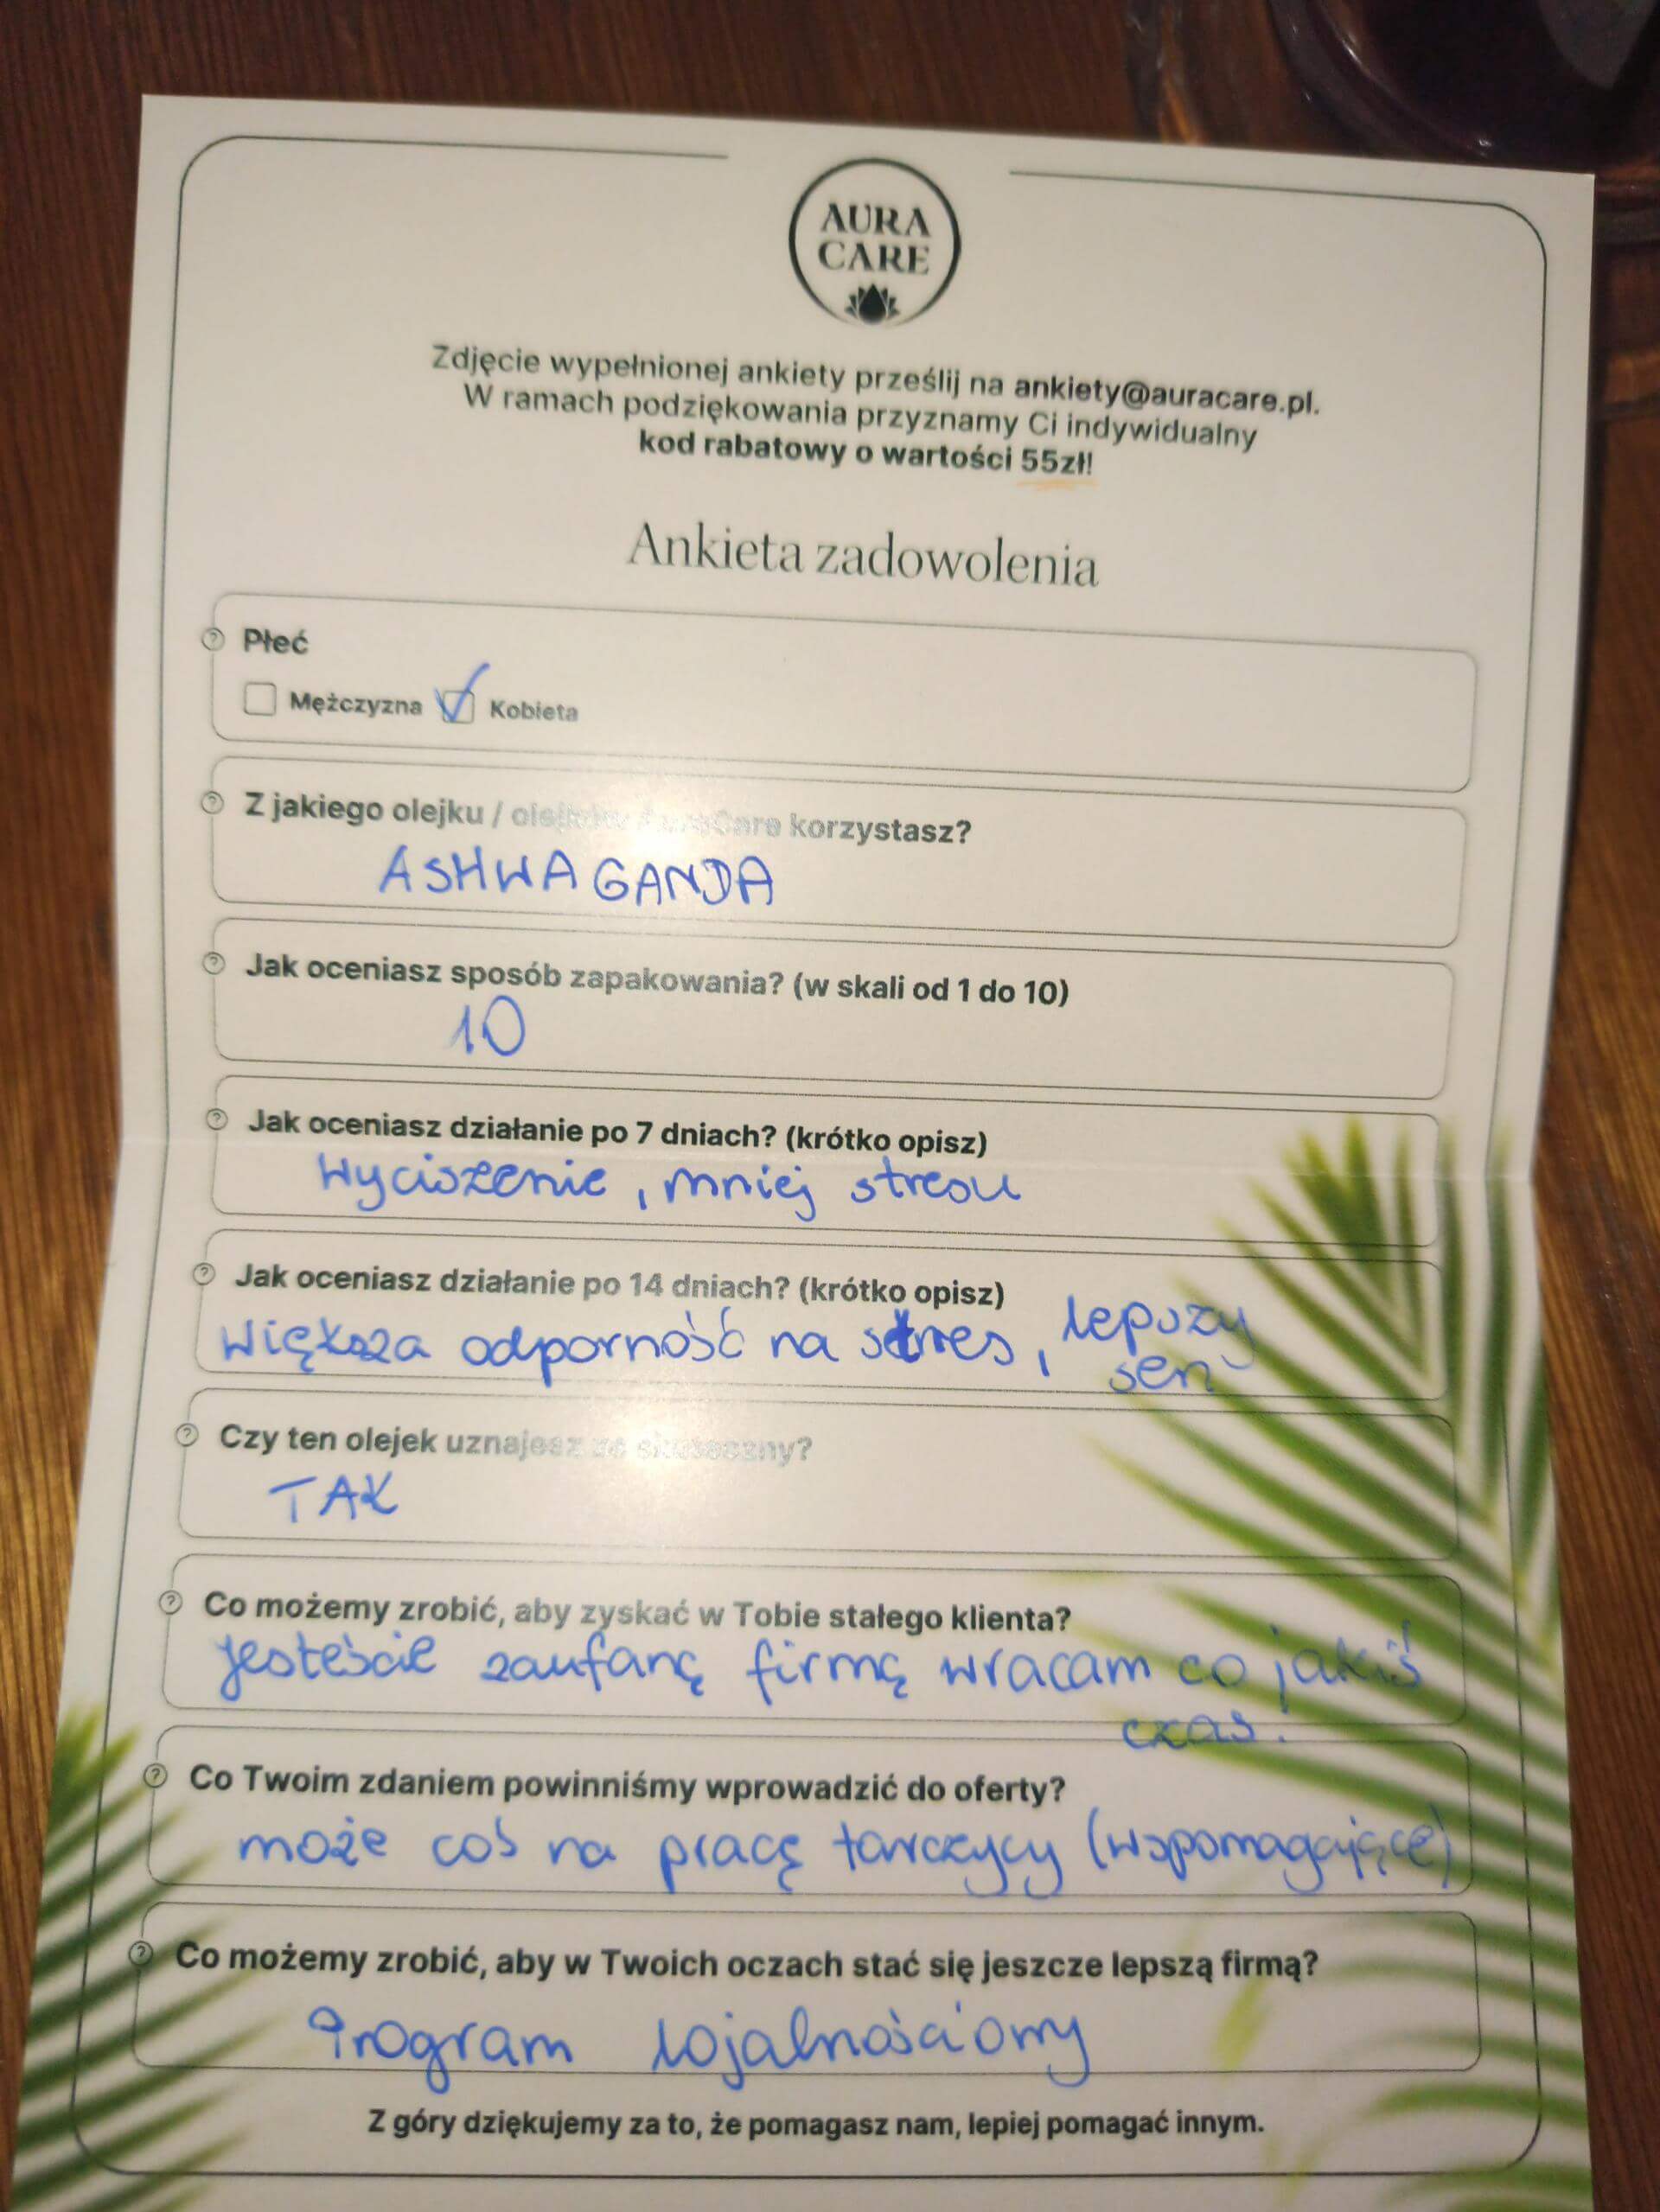 AURA
CARE
Zdjęcie wypełnionej ankiety prześlij na ankiety@auracare.pl.
W ramach podziękowania przyznamy Ci indywidualny
kod rabatowy o wartości 55zł!
Ankieta zadowolenia
Płeć
Mężczyzna Kobieta
Z jakiego olejku / olejków AuraCare korzystasz?
ASHWAGANDA
Jak oceniasz sposób zapakowania? (w skali od 1 do 10)
10
Jak oceniasz działanie po 7 dniach? (krótko opisz)
Wyciszenie, mniej stresu
Jak oceniasz działanie po 14 dniach? (krótko opisz)
Większa odporność na stres, lepszy
sen
Czy ten olejek uznajesz za skuteczny?
TAK
Co możemy zrobić, aby zyskać w Tobie stałego klienta?
Jesteście zaufaną firmą wracam co jakiś
czas.
Co Twoim zdaniem powinniśmy wprowadzić do oferty?
może coś na pracę tarczycy (wspomagające)
Co możemy zrobić, aby w Twoich oczach stać się jeszcze lepszą firmą?
Program lojalnościowy
Z góry dziękujemy za to, że pomagasz nam, lepiej pomagać innym.